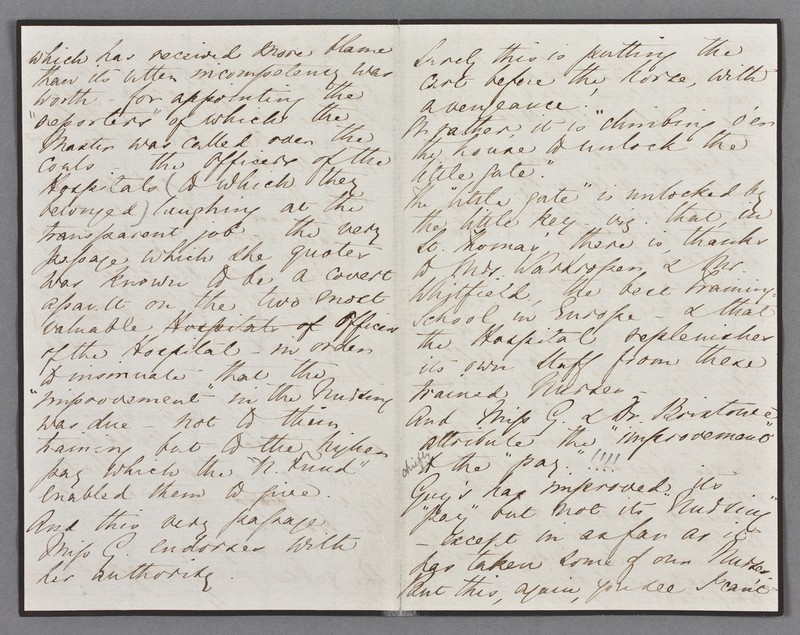 which has received more blame
than its utter incompetency was
worth - for appointing the
"reporters" of which the
Master was called over the
coals - the Officers of the
Hospitals (to which they
belonged) laughing at the
transparent job - the very
passage which she quotes
was known to be a covert
assault on the two most
valuable Hospitals of Officers
of the Hospital - in order
to insinuate that the
"improvement" in the Nursing
was due - not to their
training but to the higher
pay which the "N. Fund"
enabled them to give
And this very passage
Miss G. endorses with
her authority.
Surely this is putting the
cart before the horse, with
a vengeance!
Or rather, it is "climbing o'er
the house to unlock the
little gate".
The "little gate" is unlocked by
the little key - viz. that, in
St. Thomas', there is thanks
to Mrs. Wardroper, & Mr.
Whitfield, the best Training-
School in Europe - & that
the Hospital replenishes
its own Staff from these
trained Nurses -
And Miss G. & Dr. Bristowe
attribute the "improvement"
chiefly
to the "pay" !!!!
Guy's has improved its
"pay" but not its "Nursing"
- except in as far as it
has taken some of our Nurses
But this, again, you see I can't